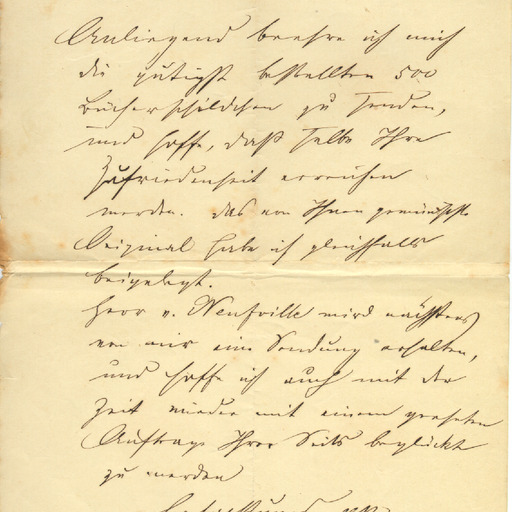 Anliegend beehre ich mich
die gütigst bestellten 500
Bücherschildchen zu senden,
und hoffe, daß selbe Ihre
Zufriedenheit erreichen
werden. Das von Ihnen gewünschte
Original habe ich gleichfalls
beigelegt.
Herr v. Neufville wird nächstens
von mir eine Sendung erhalten,
und hoffe ich auch mit der
Zeit wieder mit einem geehrten
Auftrage Ihrer Seits beglückt
zu werden